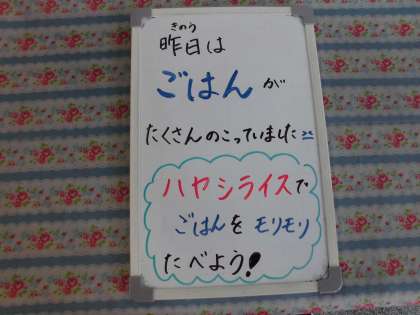 きのう
昨日は
ごはんが
たくさんのこっていました
ハヤシライスで
ごはんをモリモリ
たべよう!